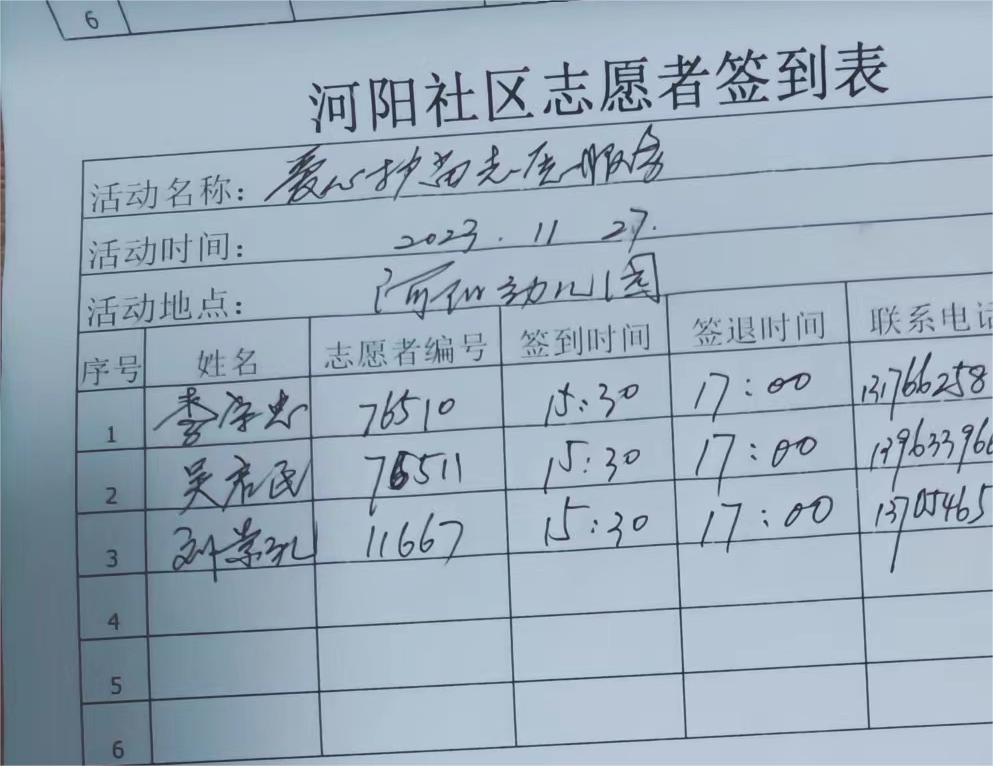 6
河阳社区志愿者签到表
活动名称：爱心护苗志愿服务
活动时间：2023.11 27.
活动地点：河阳幼儿园
序号 姓名 志愿者编号 签到时间 签退时间 联系电话
1 李学忠 76510 15:30 17:00 131766258
2 吴启民 76511 15:30 17:00 139633966
3 刘崇礼 11667 15:30 17:00 13705465
4
5
6